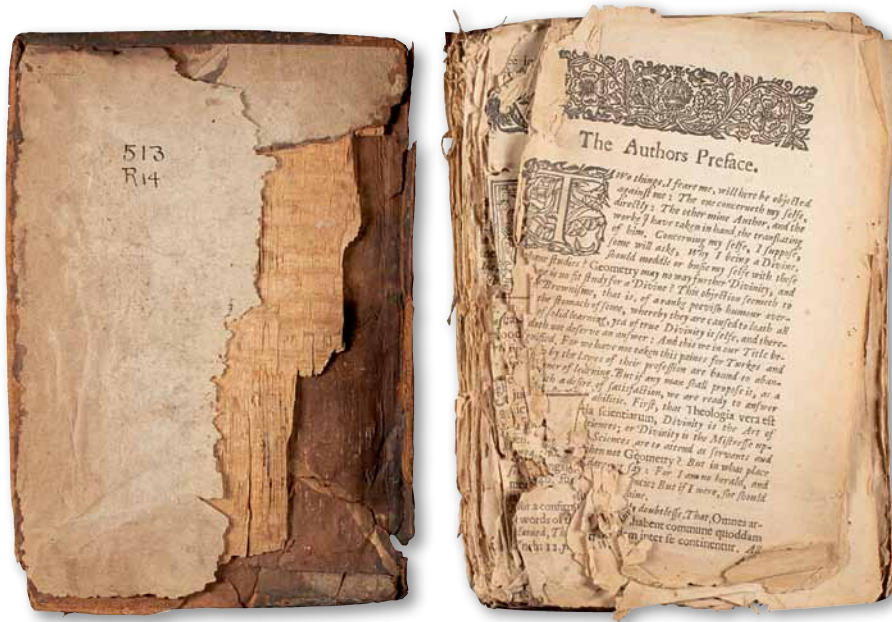 513
R14
The Authors Preface.
TWo things, I feare me, will here be objected
against me: The one concerneth my selfe,
directly: The other mine Author, and the
worke I have taken in hand the translating
of him. Concerning my selfe, I suppose,
some will aske, Why I being a Divine,
should meddle or busie my selfe with these
studies? Geometry may no way further Divinity, and
is no fit study for a Divine? This objection seemeth to
Brownisme, that is, of a ranke peevish humour over-
the stomach of some, whereby they are caused to loath all
of solid learning, yea of true Divinity it selfe, and there-
doth not deserve an answer: And this we in our Title be-
For we have not taken this paines for Turkes and
by the Lawes of their profession are bound to aban-
of learning. But if any man shall propose it, as a
a desire of satisfaction, we are ready to answer
abilitie. First, that Theologia vera est
scientiarum, Divinity is the Art of
or Divinity is the Mistresse up-
Sciences are to attend as servants and
not Geometry? But in what place
say: For I am no herald, and
But if I were, for should
for a
doubtlesse, That, Omnes ar-
words of
habent commune quoddam
inter se continentur. All